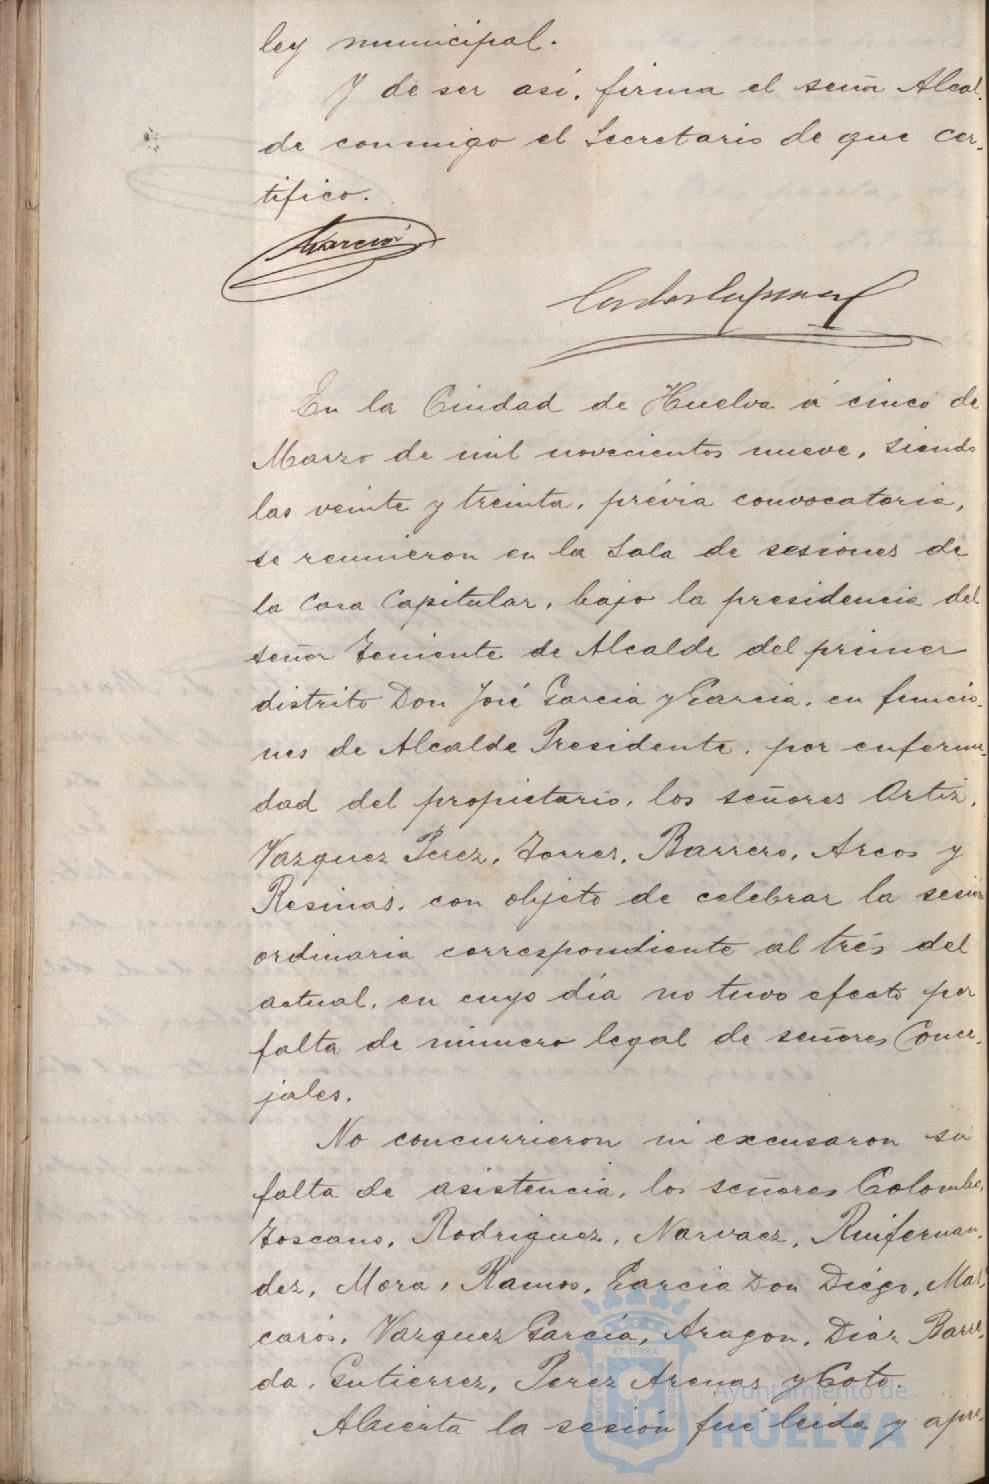 ley municipal.
Y de ser así, firma el señor Alcal-
de conmigo el Secretario de que cer-
tifico.
En la Ciudad de Huelva á cinco de
Marzo de mil novecientos nueve, siendo
las veinte y treinta, prévia convocatoria,
se reunieron en la Sala de sesiones de
la Casa Capitular, bajo la presidencia del
señor Teniente de Alcalde del primer
distrito Don José Garcia y Garcia, en funcio-
nes de Alcalde Presidente, por enferme-
dad del propietario, los señores Ortiz,
Vazquez Perez, Torres, Barrero, Arcos y
Resinas, con objeto de celebrar la sesión
ordinaria correspondiente al trés del
actual, en cuyo día no tuvo efecto por
falta de número legal de señores Conce-
jales.
No concurrieron ni excusaron su
falta de asistencia, los señores Colombo,
Toscano, Rodriguez, Narvaez, Ruifernan-
dez, Mora, Ramos, Garcia Don Diégo, Mal-
carós, Vazquez García, Aragon, Diáz Barre-
da, Gutierrez, Perez Arenas y Coto.
Abierta la sesión fué leida y apre-
ET TERRA
Ayuntamiento de
HUELVA